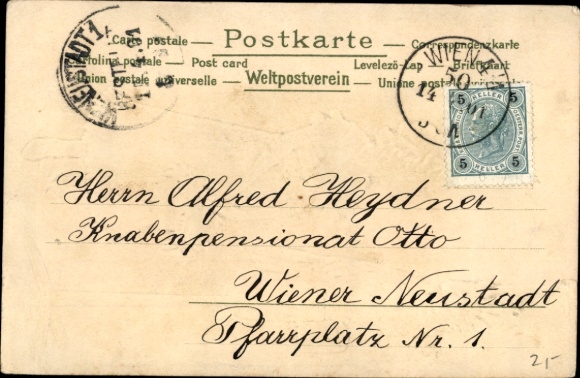 Carte postale — Postkarte — Correspondenzkarte
Cartolina postale — Post card Levelező-Lap — Briefkaart
Union postale universelle — Weltpostverein — Unione postale
WIEN
50
14
5 HELLER 5
5 HELLER 5
NEUSTADT 1
Herrn Alfred Heydner
Knabenpensionat Otto
Wiener Neustadt
Pfarrplatz Nr. 1.
2,-